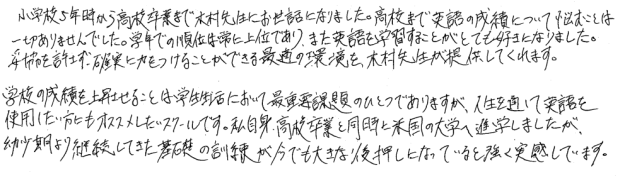 小学校5年時から高校卒業まで木村先生にお世話になりました。高校まで英語の成績について悩むことは
一切ありませんでした。学年での順位は常に上位であり、また英語を学習することがとても好きになりました。
妥協を許さず、確実に力をつけることができる最適の環境を、木村先生が提供してくれます。
学校の成績を上昇させることは学生生活において最重要課題のひとつでありますが、人生を通して英語を
使用したい方にもオススメしたいスクールです。私自身、高校卒業と同時に米国の大学へ進学しましたが、
幼少期より継続してきた基礎の訓練が今でも大きな後押しになっていると強く実感しています。